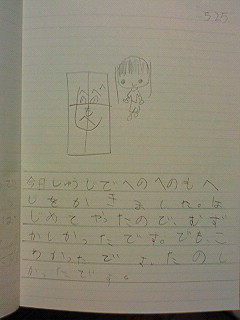 525
今日しゅうじでへのへのもへ
じをかきました。は
じめてやったので、むず
かしかったです。でも、こ
つかったです。たのし
かったです。